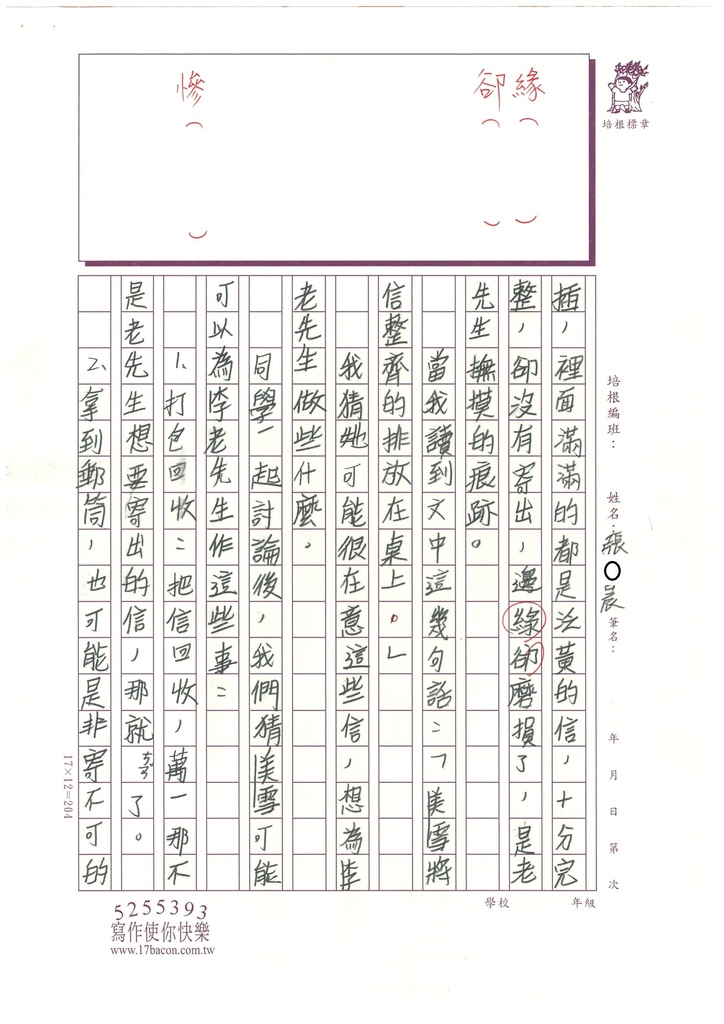 緣（　）
卻（　）
慘（　）
培根標章
培根編班：　姓名：張○晨　筆名：　年　月　日　第　次
插，裡面滿滿的都是泛黃的信，十分完
整，卻沒有寄出，邊緣卻磨損了，是老
先生撫摸的痕跡。
當我讀到文中這幾句話：「美雪將
信整齊的排放在桌上。」
我猜她可能很在意這些信，想為李
老先生做些什麼。
同學一起討論後，我們猜美雪可能
可以為李老先生作這些事：
1、打包回收：把信回收，萬一那不
是老先生想要寄出的信，那就ㄘㄢˇ了。
2、拿到郵筒，也可能是非寄不可的
17×12=204
學校　年級
5255393
寫作使你快樂
www.17bacon.com.tw